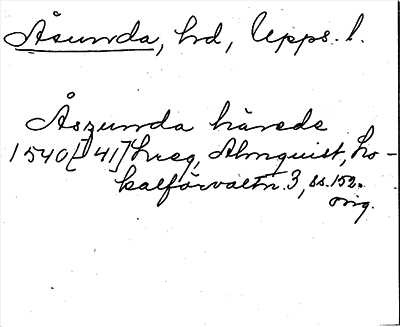 Åsunda, hd, Upps. l.
Åszunda härede
1540[-41] hreg, Almquist, Lo-
kalförvaltn. 3, ss. 152.
orig.